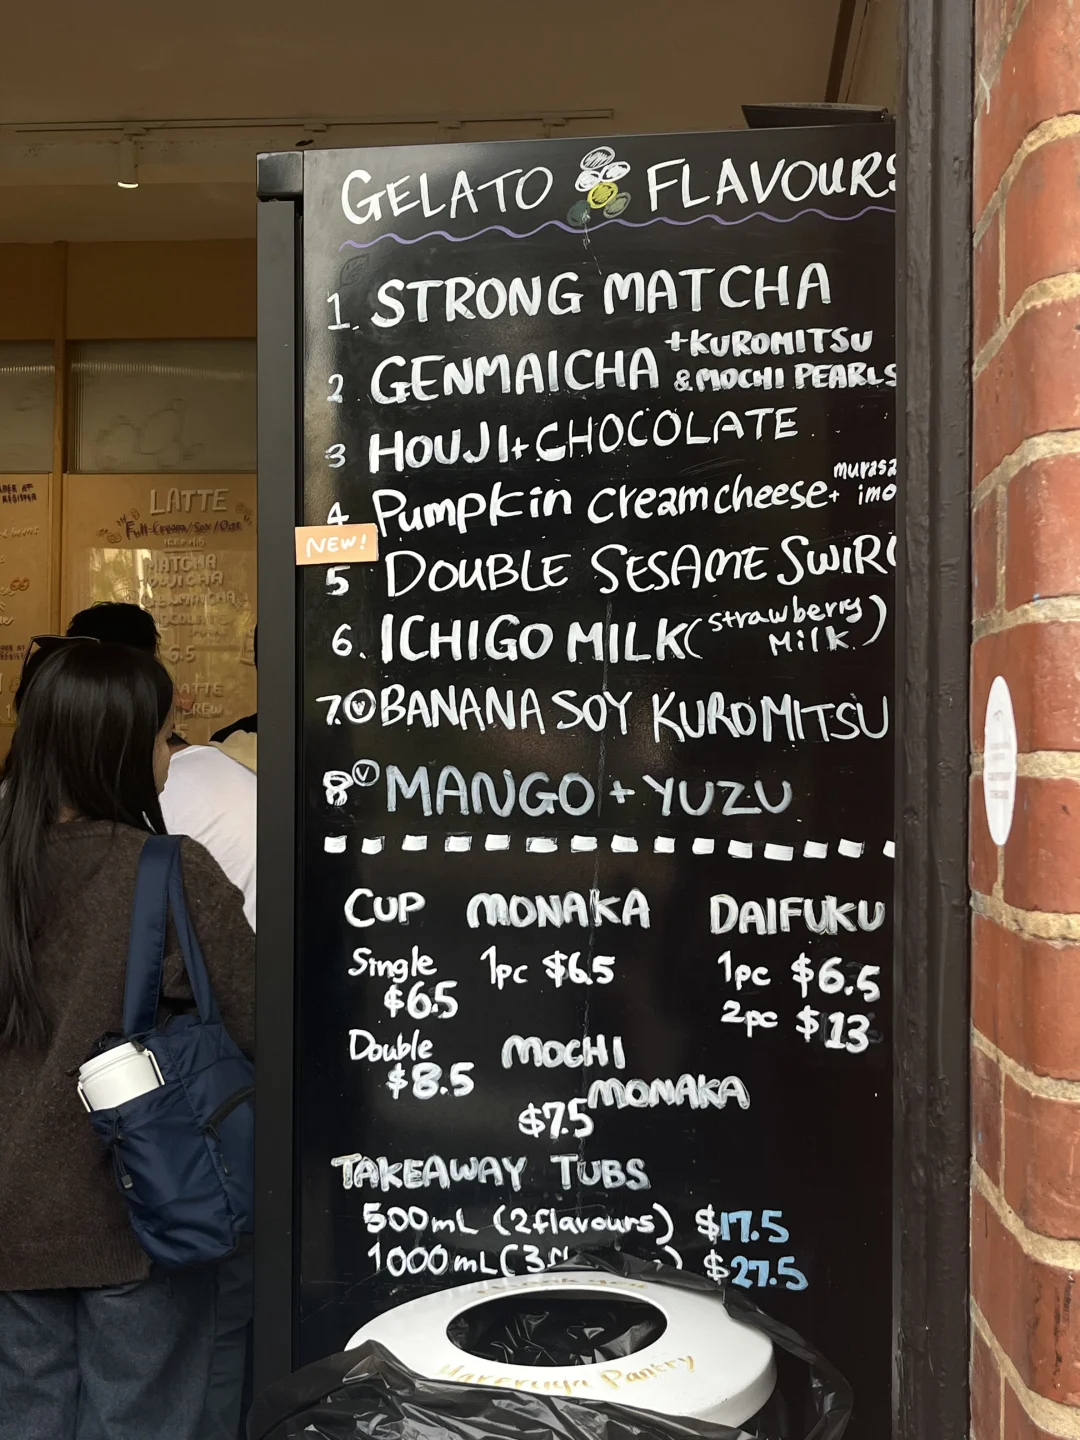 GELATO FLAVOURS
1. STRONG MATCHA
2 GENMAICHA +KUROMITSU
& MOCHI PEARLS
3 HOUJI+CHOCOLATE
4 Pumpkin creamcheese+ imo
NEW!
5 DOUBLE SESAME SWIRL
6. ICHIGO MILK (strawberry
Milk)
7. V BANANA SOY KUROMITSU
8 V MANGO + YUZU
CUP MONAKA DAIFUKU
Single 1pc $6.5 1pc $6.5
$6.5 2pc $13
Double MOCHI
$8.5 MONAKA
$7.5
TAKEAWAY TUBS
500mL (2flavours) $17.5
1000mL (3 $27.5
Pantry
LATTE
Full-Cream/Soy/Oat
MATCHA
HOUJICHA